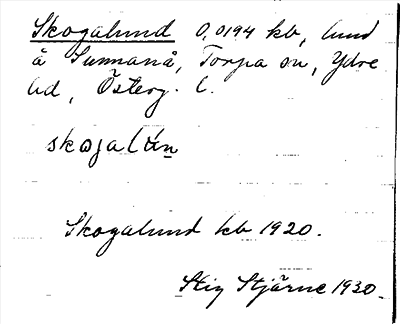 Skogalund 0,0194 kb, lund
å Sunnanå, Torpa sn, Ydre
hd, Österg. l.
skogalún
Skogalund kb 1920.
Stig Stjärne 1930.